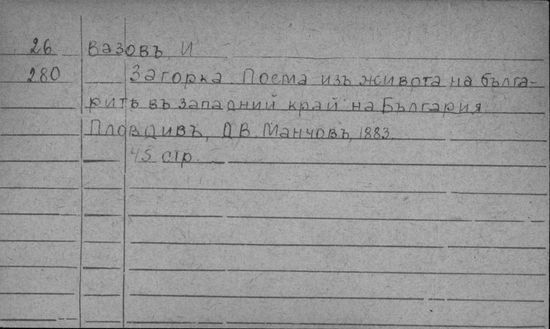 26 Вазовъ, И
280 Загорка. Поема изъ живота на бълга-
ритѣ въ западний край на България.
Пловдивъ, Д В. Манчовъ, 1883
45 стр.